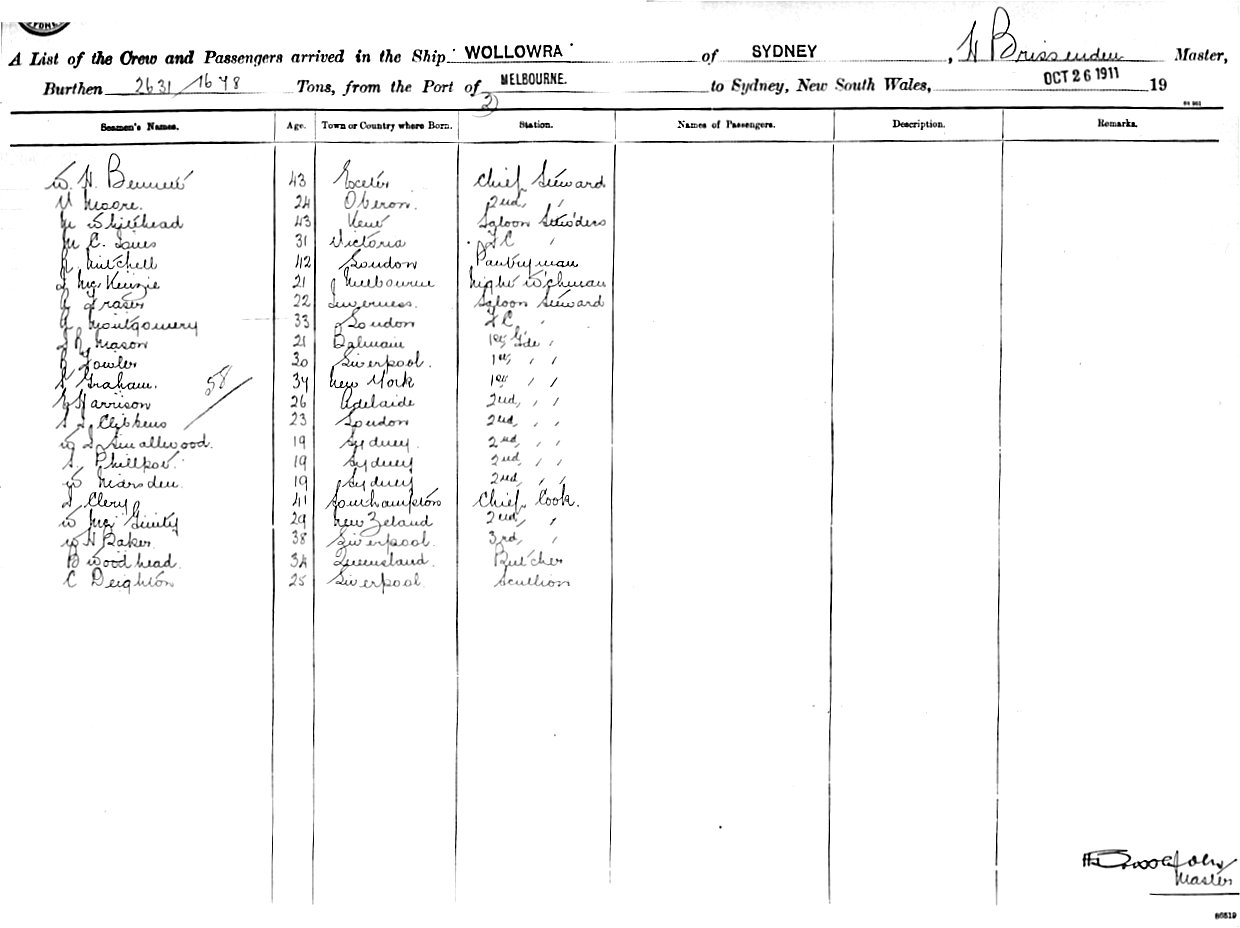 A List of the Crew and Passengers arrived in the Ship WOLLOWRA of SYDNEY, H Brissenden Master,
Burthen 2631/1648 Tons, from the Port of MELBOURNE. to Sydney, New South Wales, OCT 26 1911 19
2)
Seamen's Names. Age. Town or Country where Born. Station. Names of Passengers. Description. Remarks.
W. H. Bennett 43 Exeter Chief Steward
Moore. 24 Oberon. 2nd, "
M Whitehead 43 Kent Saloon Stewardess
M C. Jones 31 Victoria 2 C "
Mitchell 42 London Pantryman
McKenzie 21 Melbourne Night W'chman
A Fraser 22 Inverness. Saloon Steward
A Montgomery 33 London 2 C "
J R Mason 21 Balmain 1st, Gde "
Fowler 30 Liverpool. 1st, " "
Graham. 34 New York 1st " "
58
E Harrison 26 Adelaide 2nd, " "
23 London 2nd, " "
W J Smallwood. 19 Sydney. 2nd, " "
S. Phillpot. 19 Sydney 2nd, " "
W Marsden 19 Sydney 2nd, " "
J Clery 41 Southampton Chief Cook.
W McGinity 29 New Zeland 2nd, "
W H Baker 38 Liverpool. 3rd, "
B Woodhead. 34 Queensland. Butcher
C Deighton 25 Liverpool. Scullion
Master
86519